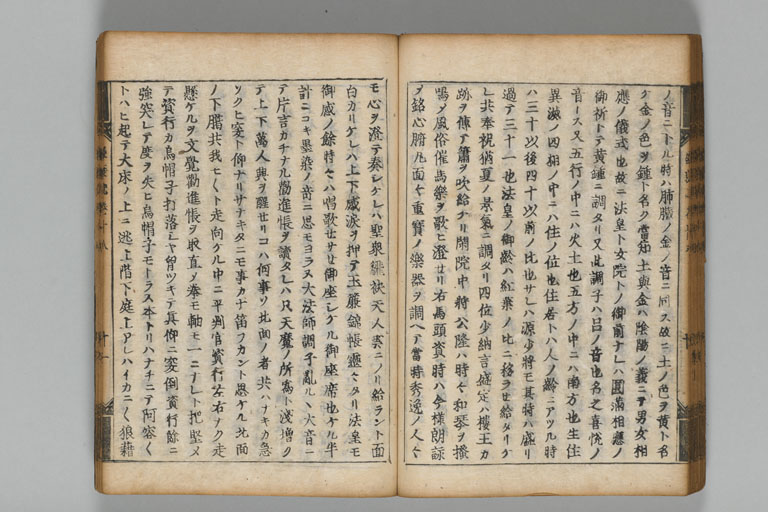 ノ音ニトル時ハ肺臓ノ金ノ音ニ同ス故ニ土ノ色ヲ黄ト名
ケ金ノ色ヲ鍾ト名ク當知土與金ハ陰陽ノ義ニテ男女相
應ノ儀式也故ニ法皇ト女院トノ御前ナレハ圓滿相應ノ
御祈トテ黄鍾ニ調タリ又此調子ハ呂ノ音也名之喜悦ノ
音トス又五行ノ中ニハ火土也五方ノ中ニハ南方也生住
異滅ノ四相ノ中ニハ住ノ位也住者ト八人ノ齢ニアツル時
ハ三十以後四十以前ノ比也サレハ源少將モ其時ハ盛リ
過テ三十一也法皇ノ御齢ハ紅葉ノ比ニ移ラセ給タリケ
レ共奉祝猶夏ノ景氣ニ調タリ四位少納言盛定ハ樓王カ
跡ヲ傳テ簫ヲ吹給ケリ閑院中將公隆ハ時々和琴ヲ搔
鳴ノ風俗催馬樂ヲ歌ヒ澄セリ右馬頭資時ハ今樣朗詠
メ銘心腑凡面々ニ重寶ノ樂器ヲ調ヘテ當時秀逸ノ人々
モ心ヲ澄テ奏シケレハ聖衆飜袂天人雲ニノリ給ラント面
白カリケレハ上下感涙ヲ押テ玉簾錦帳靈々タリ法皇モ
御感ノ餘時々ハ唱歌セサセ御座シケル御座席也ケル半
計ニコキ墨染ノ思モヨラス大法師調子亂ルヽ大音ニ
テ片言カチナル勸進帳ヲ讀タレハ只天魔ノ所爲ト淺增ク
テ上下萬人興ヲ醒セリコハ何事ソ北面ノ者共ハナキカ急
ソクヒ突ト仰ナリサナキタニモ事カナ笛フカント思ケル北面
ノ下臈共我モ〳〵ト走向ケル中ニ平判官資行左右ノク走
懸ケルヲ文覺勸進帳ヲ取直ノ拳モ軸モ一ニナレト把堅メ
テ資行カ烏帽子打落シヤ胷ツキテ眞仰ニ突倒資行餘ニ
強突レテ度ヲ失ヒ烏帽子モトラス本トリハナチニテ阿容々
トハヒ起テ大床ノ上ニ逃上階下庭上アレハイカニ〳〵狼藉